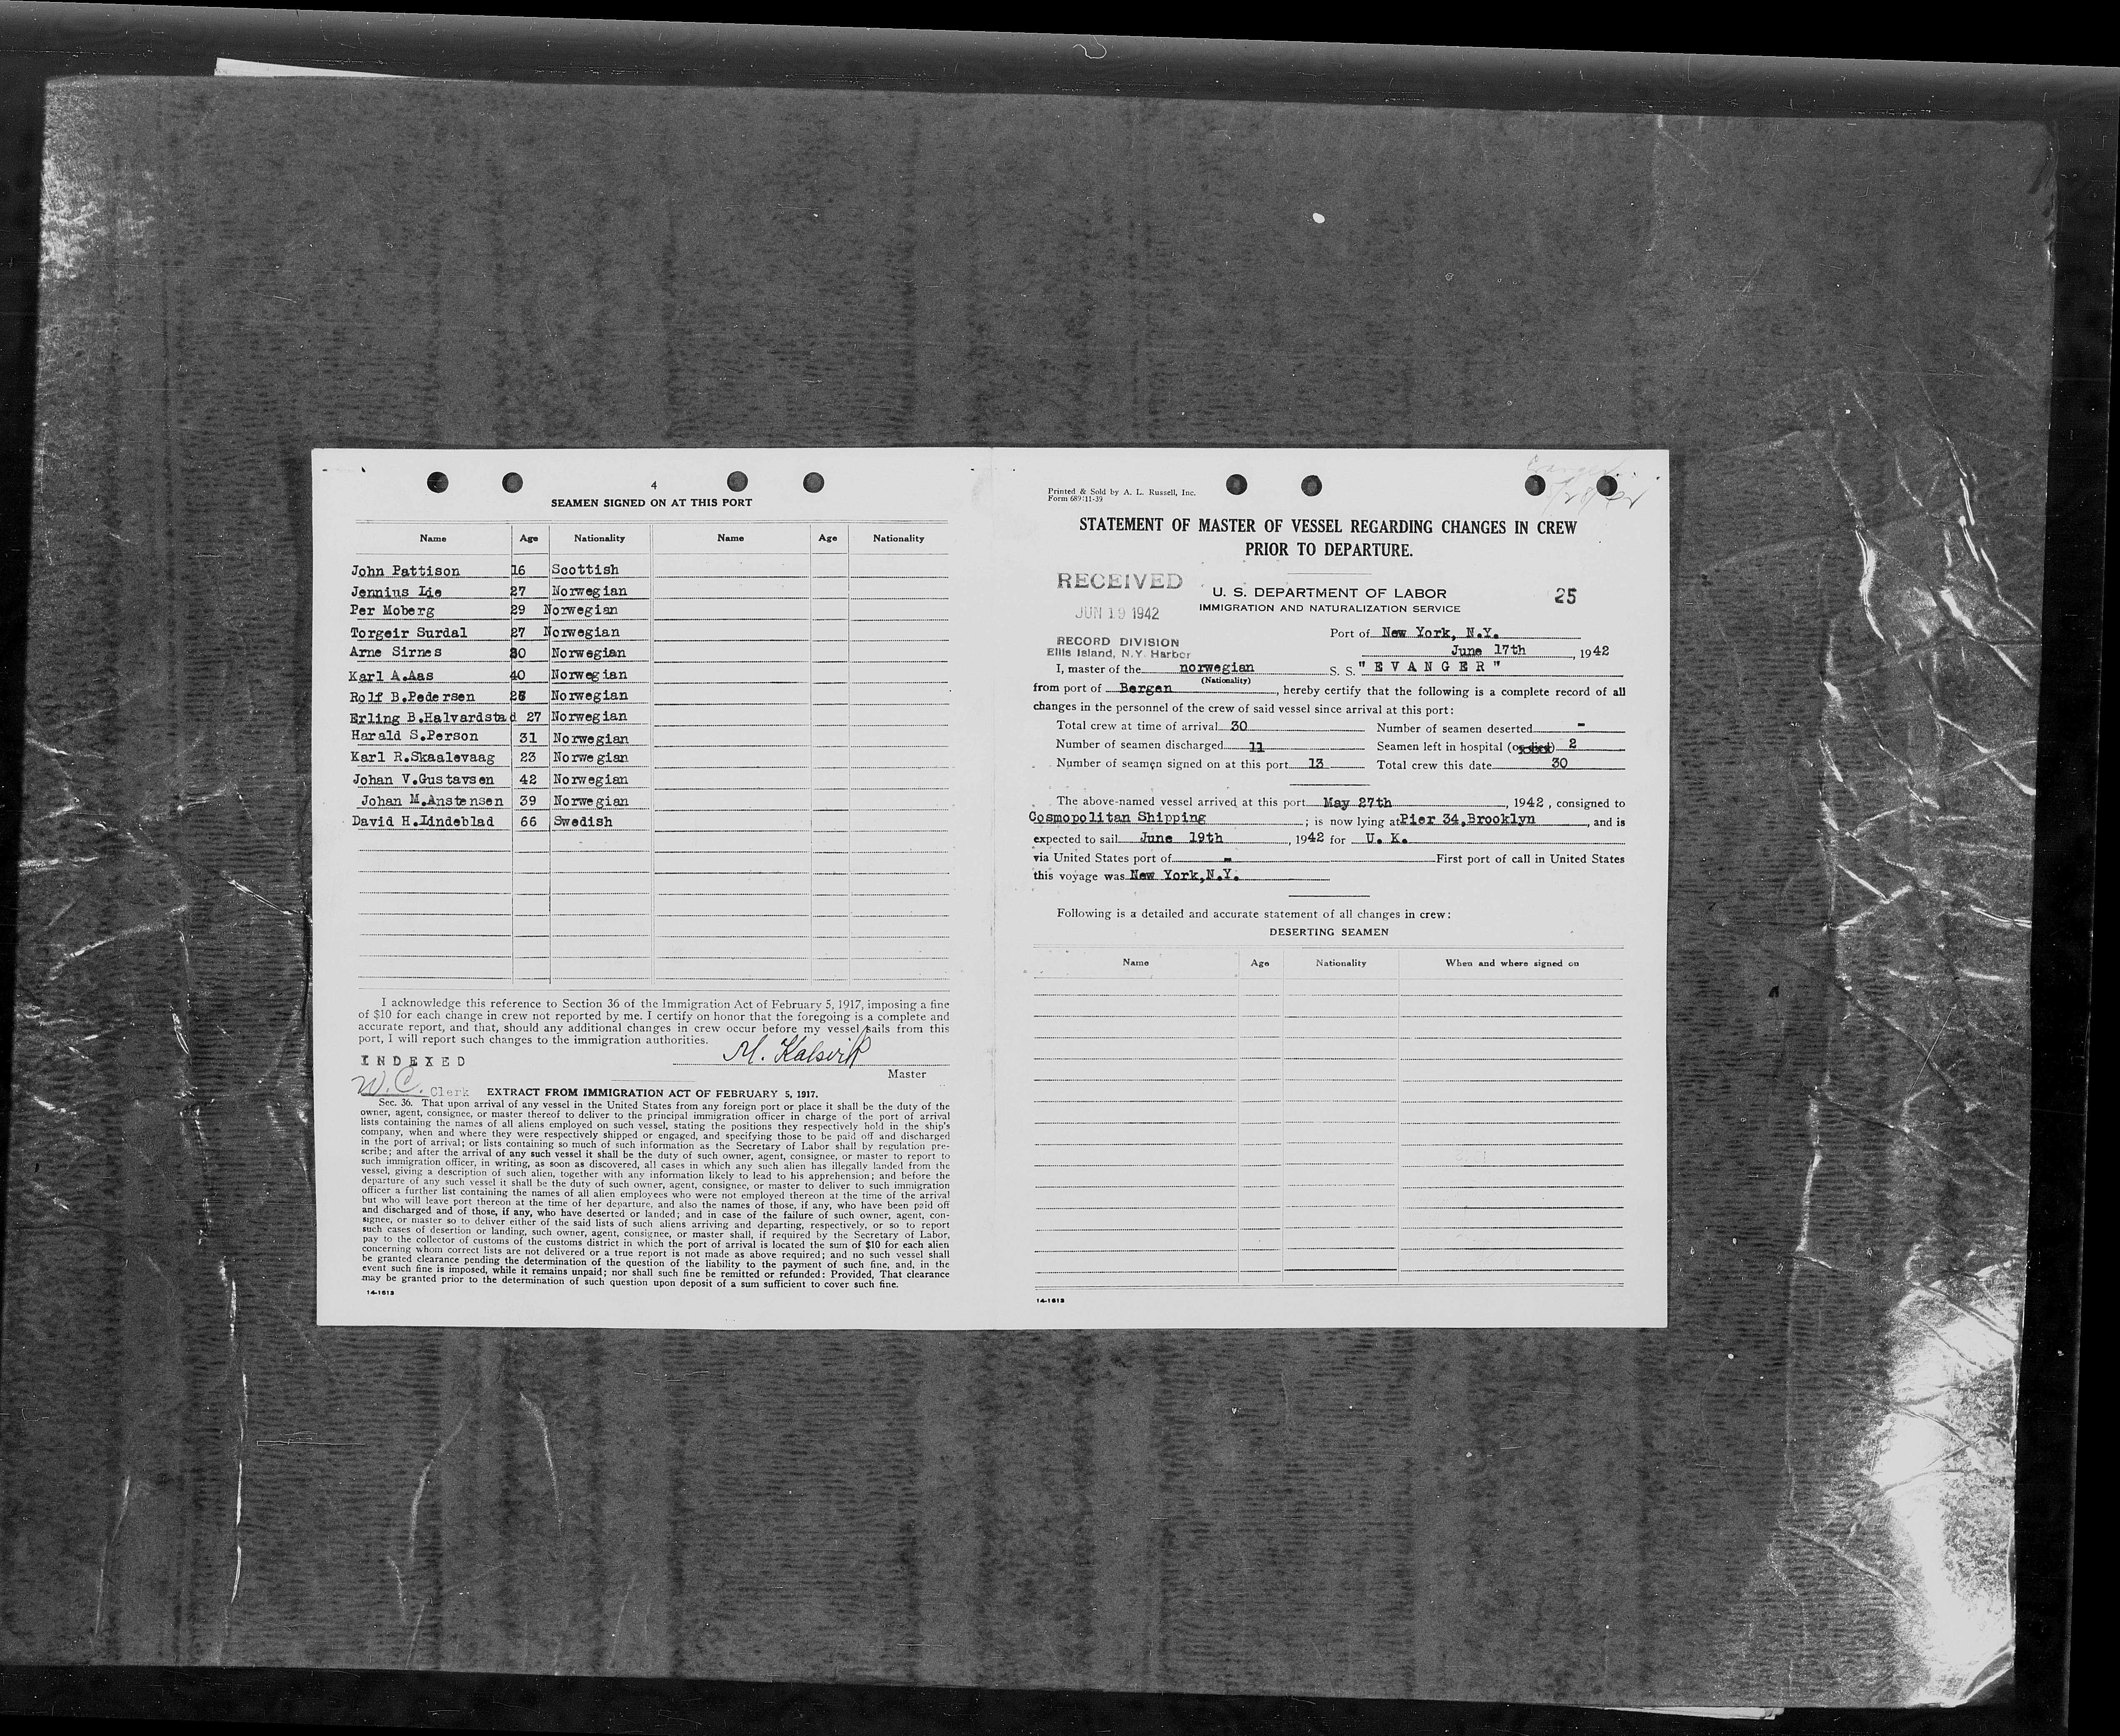 4
SEAMEN SIGNED ON AT THIS PORT
Name Age Nationality Name Age Nationality
John Pattison 16 Scottish
Jennius Lie 27 Norwegian
Per Moberg 29 Norwegian
Torgeir Surdal 27 Norwegian
Arne Sirnes 30 Norwegian
Karl A.Aas 40 Norwegian
Rolf B.Pedersen Norwegian
Erling B.Halvardstad 27 Norwegian
Harald S.Person 31 Norwegian
Karl R.Skaalevaag 23 Norwegian
Johan V.Gustavsen 42 Norwegian
Johan M.Anstensen 39 Norwegian
David H.Lindeblad 66 Swedish
I acknowledge this reference to Section 36 of the Immigration Act of February 5, 1917, imposing a fine
of $10 for each change in crew not reported by me. I certify on honor that the foregoing is a complete and
accurate report, and that, should any additional changes in crew occur before my vessel sails from this
port, I will report such changes to the immigration authorities.
M. Kalsvik
INDEXED
Master
W.C. Clerk
EXTRACT FROM IMMIGRATION ACT OF FEBRUARY 5, 1917.
Sec. 36. That upon arrival of any vessel in the United States from any foreign port or place it shall be the duty of the
owner, agent, consignee, or master thereof to deliver to the principal immigration officer in charge of the port of arrival
lists containing the names of all aliens employed on such vessel, stating the positions they respectively hold in the ship's
company, when and where they were respectively shipped or engaged, and specifying those to be paid off and discharged
in the port of arrival; or lists containing so much of such information as the Secretary of Labor shall by regulation pre-
scribe; and after the arrival of any such vessel it shall be the duty of such owner, agent, consignee, or master to report to
such immigration officer, in writing, as soon as discovered, all cases in which any such alien has illegally landed from the
vessel, giving a description of such alien, together with any information likely to lead to his apprehension; and before the
departure of any such vessel it shall be the duty of such owner, agent, consignee, or master to deliver to such immigration
officer a further list containing the names of all alien employees who were not employed thereon at the time of the arrival
but who will leave port thereon at the time of her departure, and also the names of those, if any, who have been paid off
and discharged and of those, if any, who have deserted or landed; and in case of the failure of such owner, agent, con-
signee, or master so to deliver either of the said lists of such aliens arriving and departing, respectively, or so to report
such cases of desertion or landing, such owner, agent, consignee, or master shall, if required by the Secretary of Labor,
pay to the collector of customs of the customs district in which the port of arrival is located the sum of $10 for each alien
concerning whom correct lists are not delivered or a true report is not made as above required; and no such vessel shall
be granted clearance pending the determination of the question of the liability to the payment of such fine, and, in the
event such fine is imposed, while it remains unpaid; nor shall such fine be remitted or refunded: Provided, That clearance
may be granted prior to the determination of such question upon deposit of a sum sufficient to cover such fine.
14-1613
Printed & Sold by A. L. Russell, Inc.
Form 689:11-39
STATEMENT OF MASTER OF VESSEL REGARDING CHANGES IN CREW
PRIOR TO DEPARTURE.
RECEIVED
JUN 19 1942
RECORD DIVISION
Ellis Island, N.Y. Harbor
U. S. DEPARTMENT OF LABOR 25
IMMIGRATION AND NATURALIZATION SERVICE
Port of New York, N.Y.
June 17th, 1942
I, master of the norwegian S. S. "EVANGER"
(Nationality)
from port of Bergen, hereby certify that the following is a complete record of all
changes in the personnel of the crew of said vessel since arrival at this port:
Total crew at time of arrival 30 Number of seamen deserted -
Number of seamen discharged 11 Seamen left in hospital (or died) 2
Number of seamen signed on at this port 13 Total crew this date 30
The above-named vessel arrived at this port May 27th, 1942, consigned to
Cosmopolitan Shipping; is now lying at Pier 34,Brooklyn, and is
expected to sail June 19th, 1942 for U. K.
via United States port of - First port of call in United States
this voyage was New York,N.Y.
Following is a detailed and accurate statement of all changes in crew:
DESERTING SEAMEN
Name Age Nationality When and where signed on
14-1613